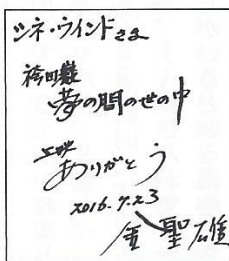 シネ・ウインドさま
袴田巖
夢の間の世の中
上映
ありがとう
2016.7.23
金聖雄